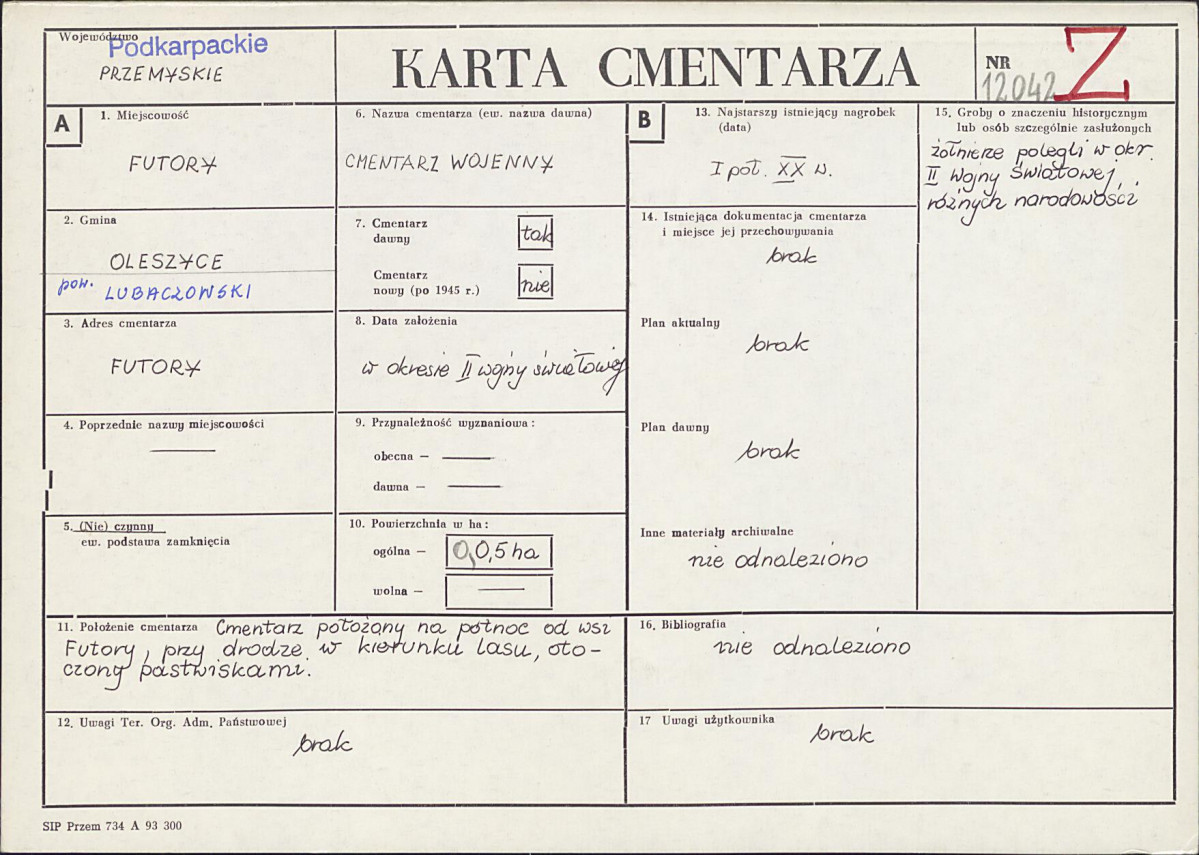 Województwo
Podkarpackie
PRZEMYSKIE
KARTA CMENTARZA
NR
12042
Z
A
1. Miejscowość
FUTORY
2. Gmina
OLESZYCE
pow. LUBACZOWSKI
3. Adres cmentarza
FUTORY
4. Poprzednie nazwy miejscowości
—
5. (Nie) czynny
ew. podstawa zamknięcia
6. Nazwa cmentarza (ew. nazwa dawna)
CMENTARZ WOJENNY
7. Cmentarz
dawny
tak
Cmentarz
nowy (po 1945 r.)
nie
8. Data założenia
w okresie II wojny światowej
9. Przynależność wyznaniowa:
obecna — —
dawna — —
10. Powierzchnia w ha:
ogólna — 0,05 ha
wolna — —
B
13. Najstarszy istniejący nagrobek
(data)
I poł. XX w.
14. Istniejąca dokumentacja cmentarza
i miejsce jej przechowywania
brak
Plan aktualny
brak
Plan dawny
brak
Inne materiały archiwalne
nie odnaleziono
15. Groby o znaczeniu historycznym
lub osób szczególnie zasłużonych
żołnierze polegli w okr.
II Wojny Światowej,
różnych narodowości
11. Położenie cmentarza Cmentarz położony na północ od wsi
Futory, przy drodze w kierunku lasu, oto-
czony pastwiskami.
12. Uwagi Ter. Org. Adm. Państwowej
brak
16. Bibliografia
nie odnaleziono
17 Uwagi użytkownika
brak
SIP Przem 734 A 93 300